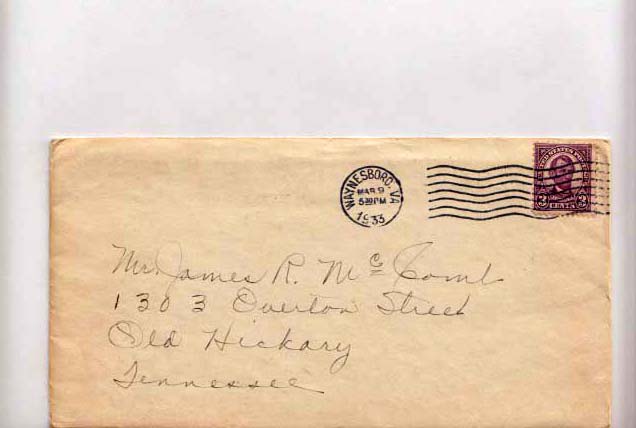 WAYNESBORO, VA
MAR 9
5 30 PM
1933
3 3
Mr. James R. McComb
1303 Overton Street
Old Hickory
Tennessee